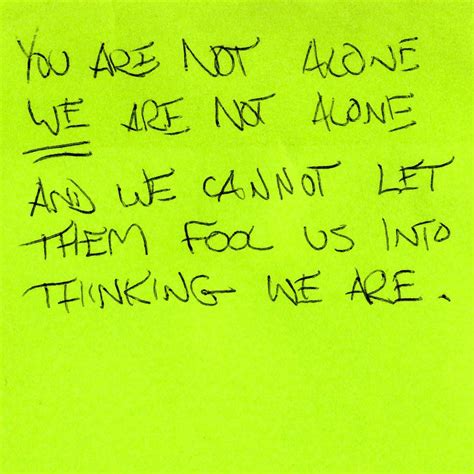 YOU ARE NOT ALONE
WE ARE NOT ALONE
AND WE CANNOT LET
THEM FOOL US INTO
THINKING WE ARE.